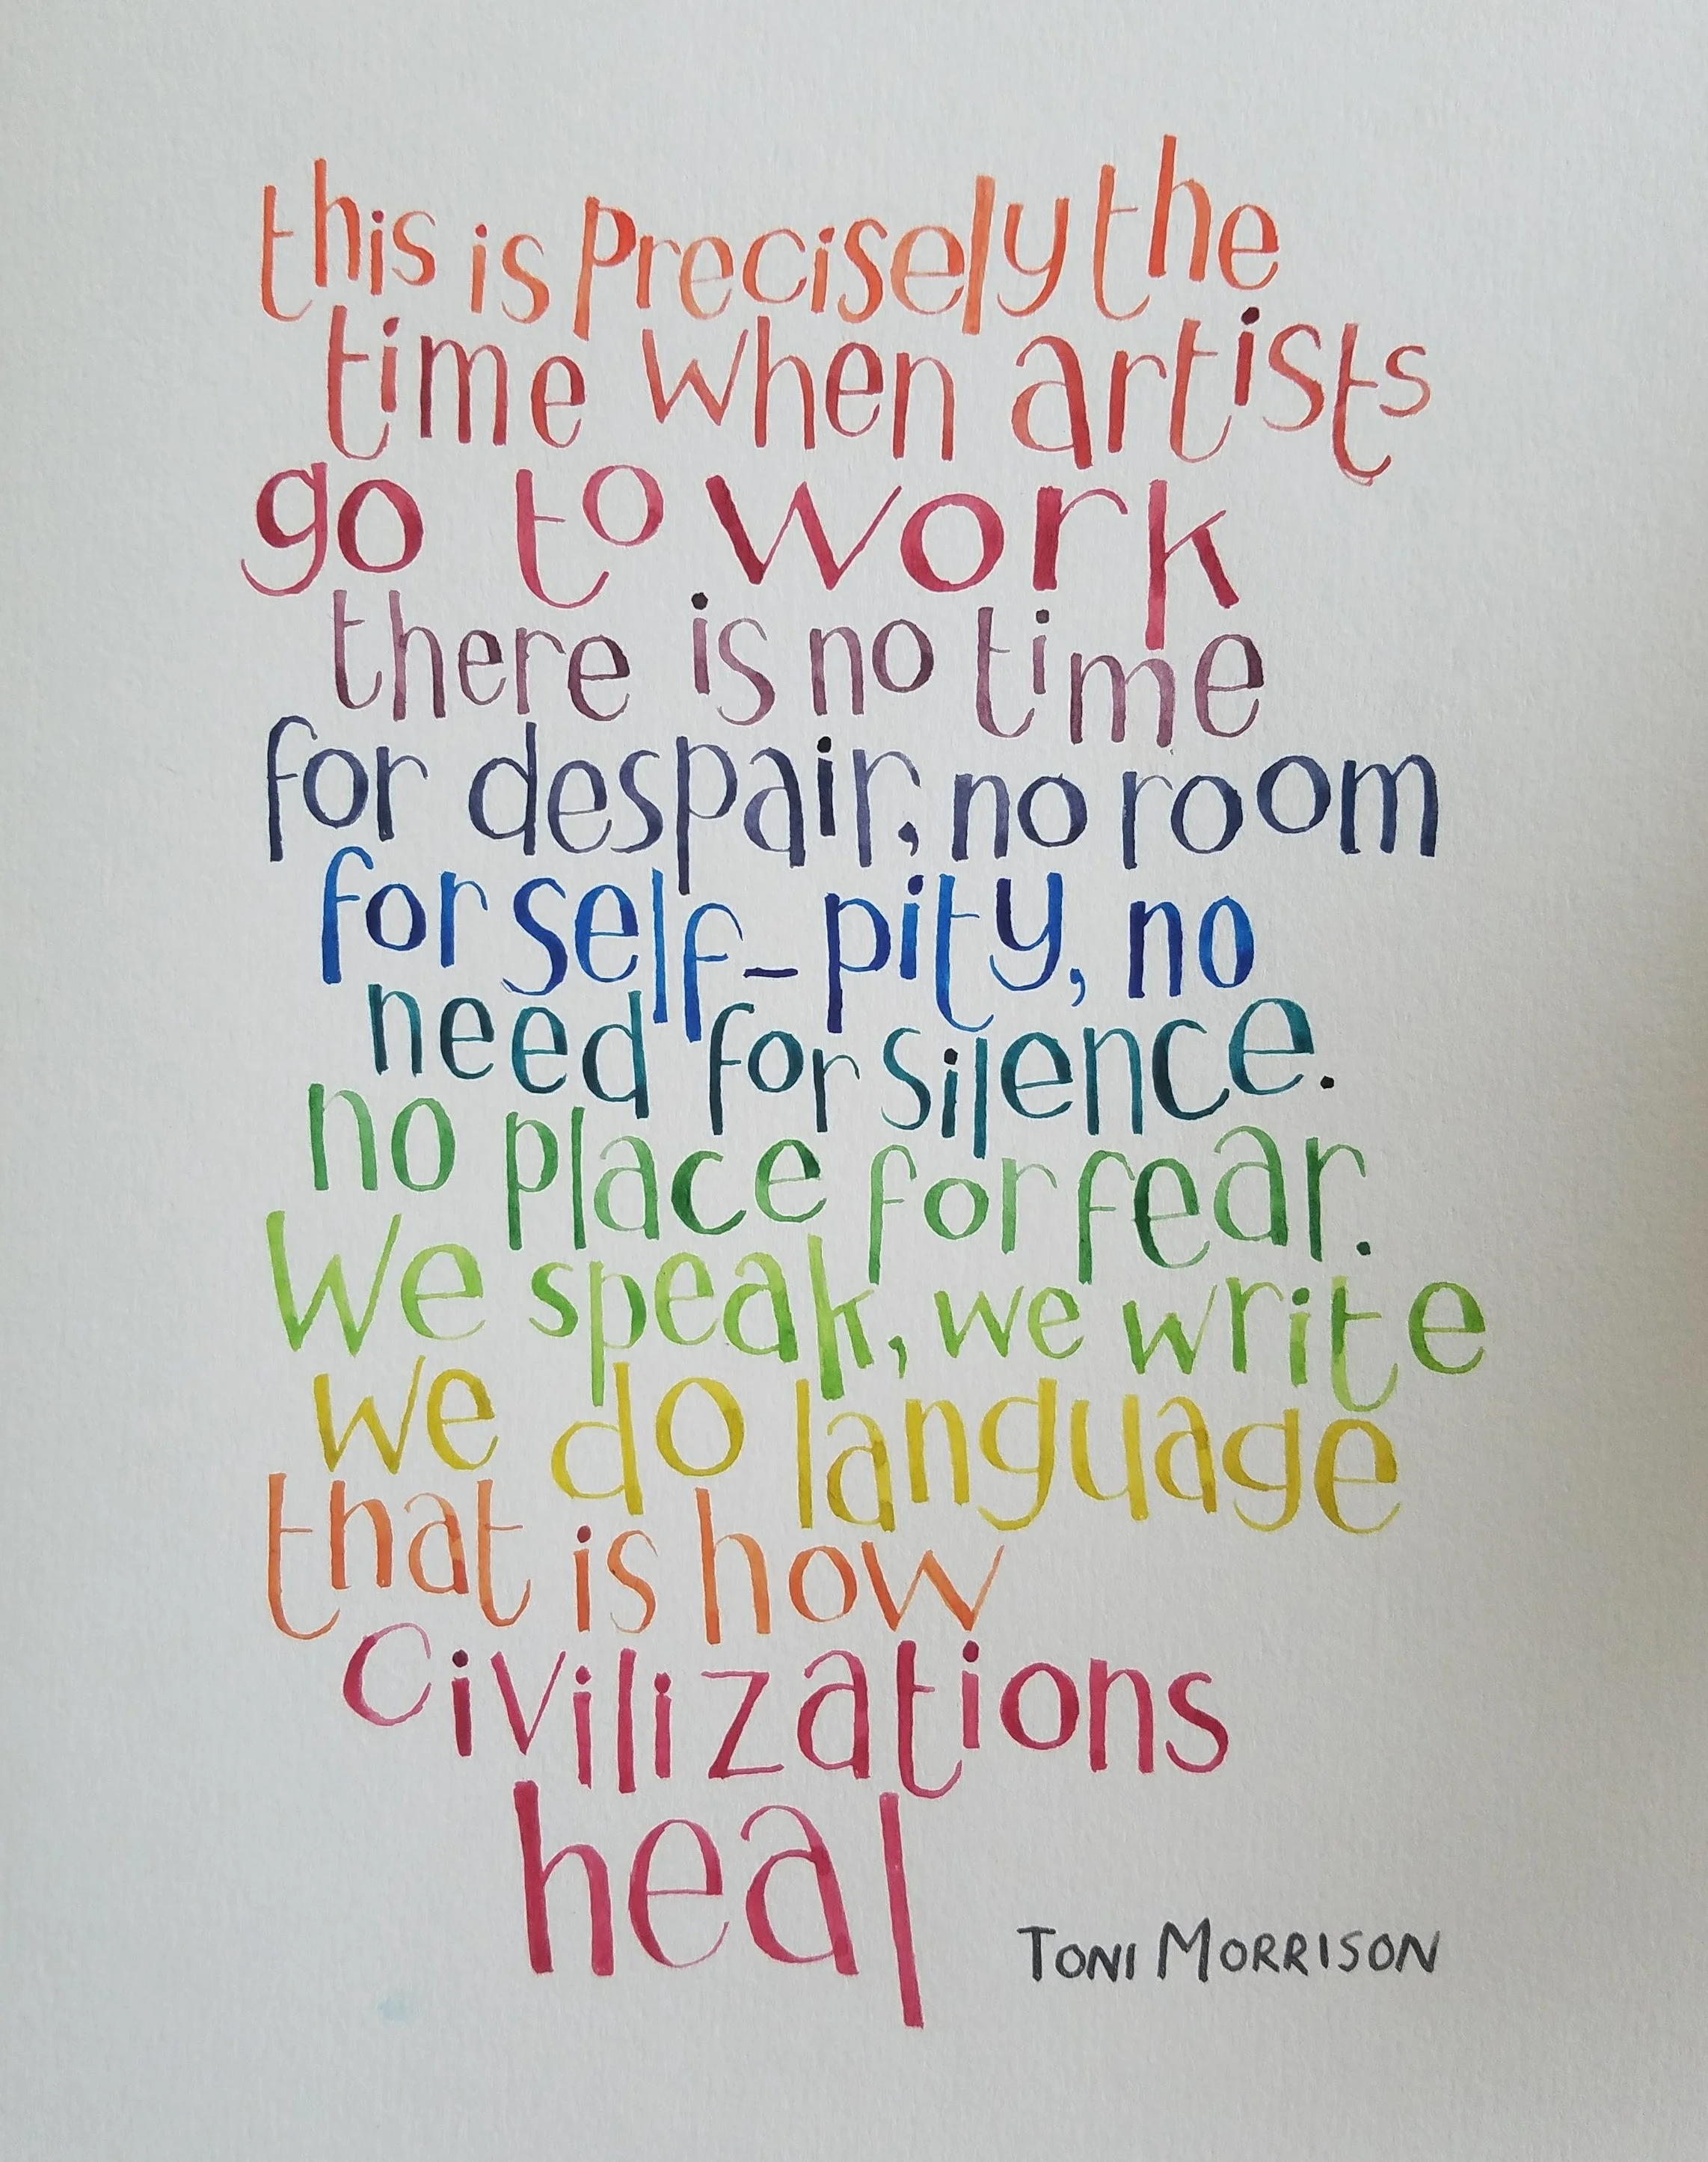 this is precisely the
time when artists
go to work
there is no time
for despair, no room
for self-pity, no
need for silence.
no place for fear.
We speak, we write
we do language
that is how
civilizations
heal
TONI MORRISON